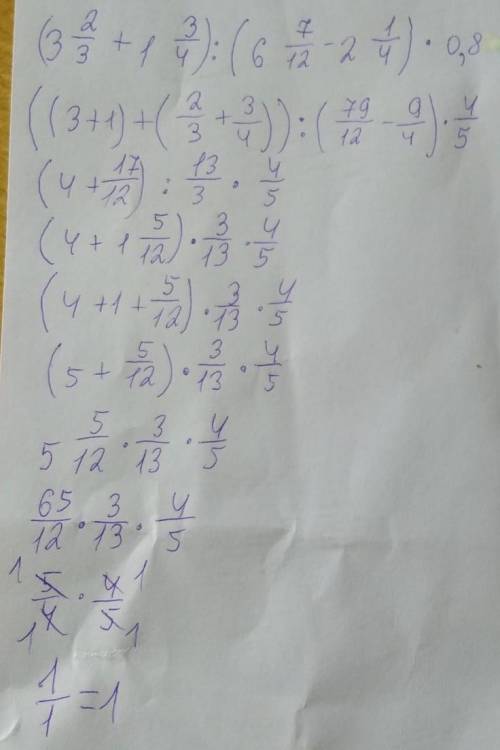 (3 2/3 + 1 3/4) : (6 7/12 - 2 1/4) · 0,8
((3+1) + (2/3 + 3/4)) : (79/12 - 9/4) · 4/5
(4 + 17/12) : 13/3 · 4/5
(4 + 1 5/12) · 3/13 · 4/5
(4 + 1 + 5/12) · 3/13 · 4/5
(5 + 5/12) · 3/13 · 4/5
5 5/12 · 3/13 · 4/5
65/12 · 3/13 · 4/5
1 5/4 1 · 4/5 1 1
1/1 = 1